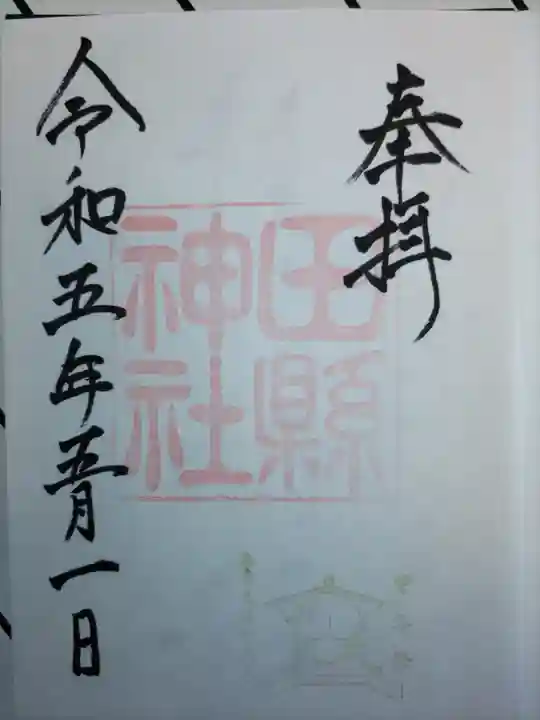 奉拝
田縣
神社
令和五年五月一日